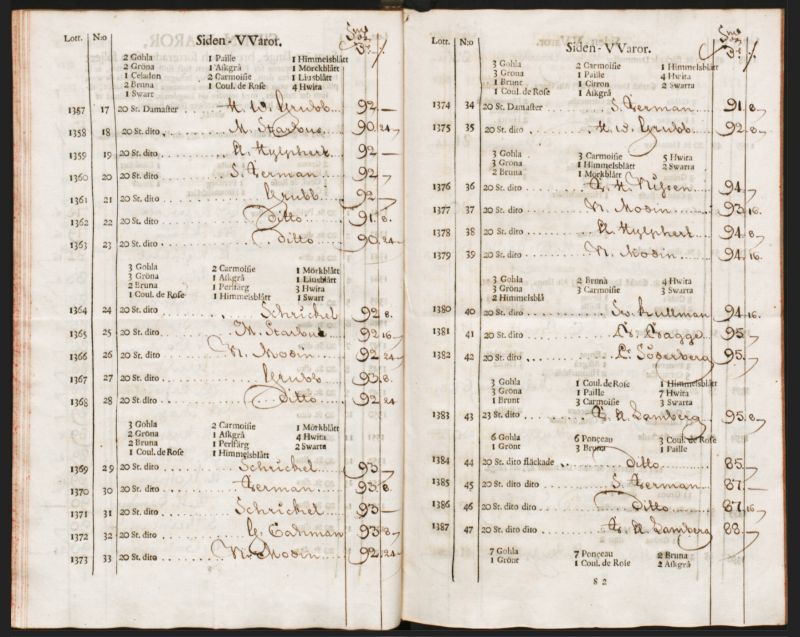 Lott. N:o Siden-VVaror.
2 Gohla 1 Paille 1 Himmelsblått
2 Gröna 1 Aſkgrå 1 Mörckblått
1 Celadon 2 Carmoiſie 1 Liusblått
2 Bruna 1 Coul. de Roſe 4 Hwita
1 Swart
1357 17 20 St. Damaſter H. W. Grubb 92 —
1358 18 20 St. dito M. Starbus 90. 24
1359 19 20 St. dito R. Hylphert 92 —
1360 20 20 St. dito S. Ferman 92
1361 21 20 St. dito Grubb 92
1362 22 20 St. dito Ditto 91. 8.
1363 23 20 St. dito Ditto 90. 24
3 Gohla 2 Carmoiſie 1 Mörkblått
3 Gröna 1 Aſkgrå 1 Liusblått
2 Bruna 1 Perlfärg 3 Hwita
1 Coul. de Roſe 1 Himmelsblått 1 Swart
1364 24 20 St. dito Schrickel 92 8.
1365 25 20 St. dito M. Starbus 92 16
1366 26 20 St. dito N. Modin 92 24
1367 27 20 St. dito Grubb 93. 8.
1368 28 20 St. dito Ditto 92 24
3 Gohla 2 Carmoiſie 1 Mörkblått
2 Gröna 1 Aſkgrå 4 Hwita
2 Bruna 1 Perlfärg 2 Swarta
1 Coul. de Roſe 1 Himmelsblått
1369 29 20 St. dito Schrickel 93
1370 30 20 St. dito Ferman 93. 8.
1371 31 20 St. dito Schrickel 93 —
1372 32 20 St. dito G. Cahman 93 8
1373 33 20 St. dito N. Modin 92. 24
Lott. N:o Siden-VVaror.
3 Gohla 2 Carmoiſie 1 Himmelsblått
3 Gröna 1 Paille 4 Hwita
1 Brunt 1 Citron 2 Swarta
1 Coul. de Roſe 1 Aſkgrå
1374 34 20 St. Damaſter S. Ferman 91. 8
1375 35 20 St. dito H. W. Grubb 92. 8
3 Gohla 3 Carmoiſie 5 Hwita
3 Gröna 1 Himmelsblått 2 Swarta
2 Bruna 1 Mörkblått
1376 36 20 St. dito 94.
1377 37 20 St. dito N. Modin 93 16.
1378 38 20 St. dito R. Hylphert 94. 8
1379 39 20 St. dito N. Modin 94. 16.
3 Gohla 2 Bruna 4 Hwita
3 Gröna 3 Carmoiſie 3 Swarta
2 Himmelsblå
1380 40 20 St. dito Kullman 94 16
1381 41 20 St. dito Bagge 95
1382 42 20 St. dito Söderberg 95.
3 Gohla 1 Coul. de Roſe 1 Himmelsblått
3 Gröna 1 Paille 7 Hwita
1 Brunt 3 Carmoiſie 3 Swarta
1383 43 23 St. dito Lamberg 95. 8
6 Gohla 6 Ponçeau 3 Coul. de Roſe
1 Grönt 3 Bruna 1 Paille
1384 44 20 St. dito fläckade Ditto 85.
1385 45 20 St. dito dito S. Ferman 87. —
1386 46 20 St. dito dito Ditto 87. 16
1387 47 20 St. dito dito Lamberg 88.
7 Gohla 7 Ponçeau 2 Bruna
1 Grönt 1 Coul. de Roſe 2 Aſkgrå
S 2